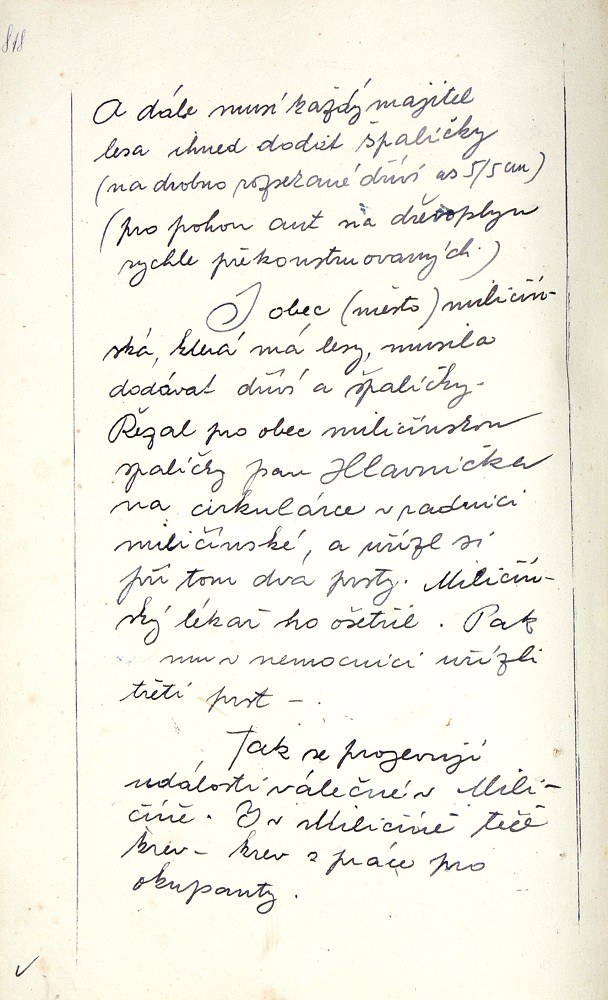 818
A dále musí každý majitel
lesa ihned dodat špalíčky
(na drobno rozřezané dříví as 5/5 cm)
(pro pohon aut na dřevoplyn
rychle překonstruovaných.)
I obec (město) miličín-
ská, která má lesy, musila
dodávat dříví a špalíčky.
Řezal pro obec miličínskou
špalíčky pan Hlavnička
na cirkulárce v radnici
miličínské, a uřízl si
při tom dva prsty. Miličín-
ský lékař ho ošetřil. Pak
mu v nemocnici uřízli
třetí prst –.
Tak se projevují
události válečné v Mili-
číně. I v Miličíně teče
krev – krev z práce pro
okupanty.